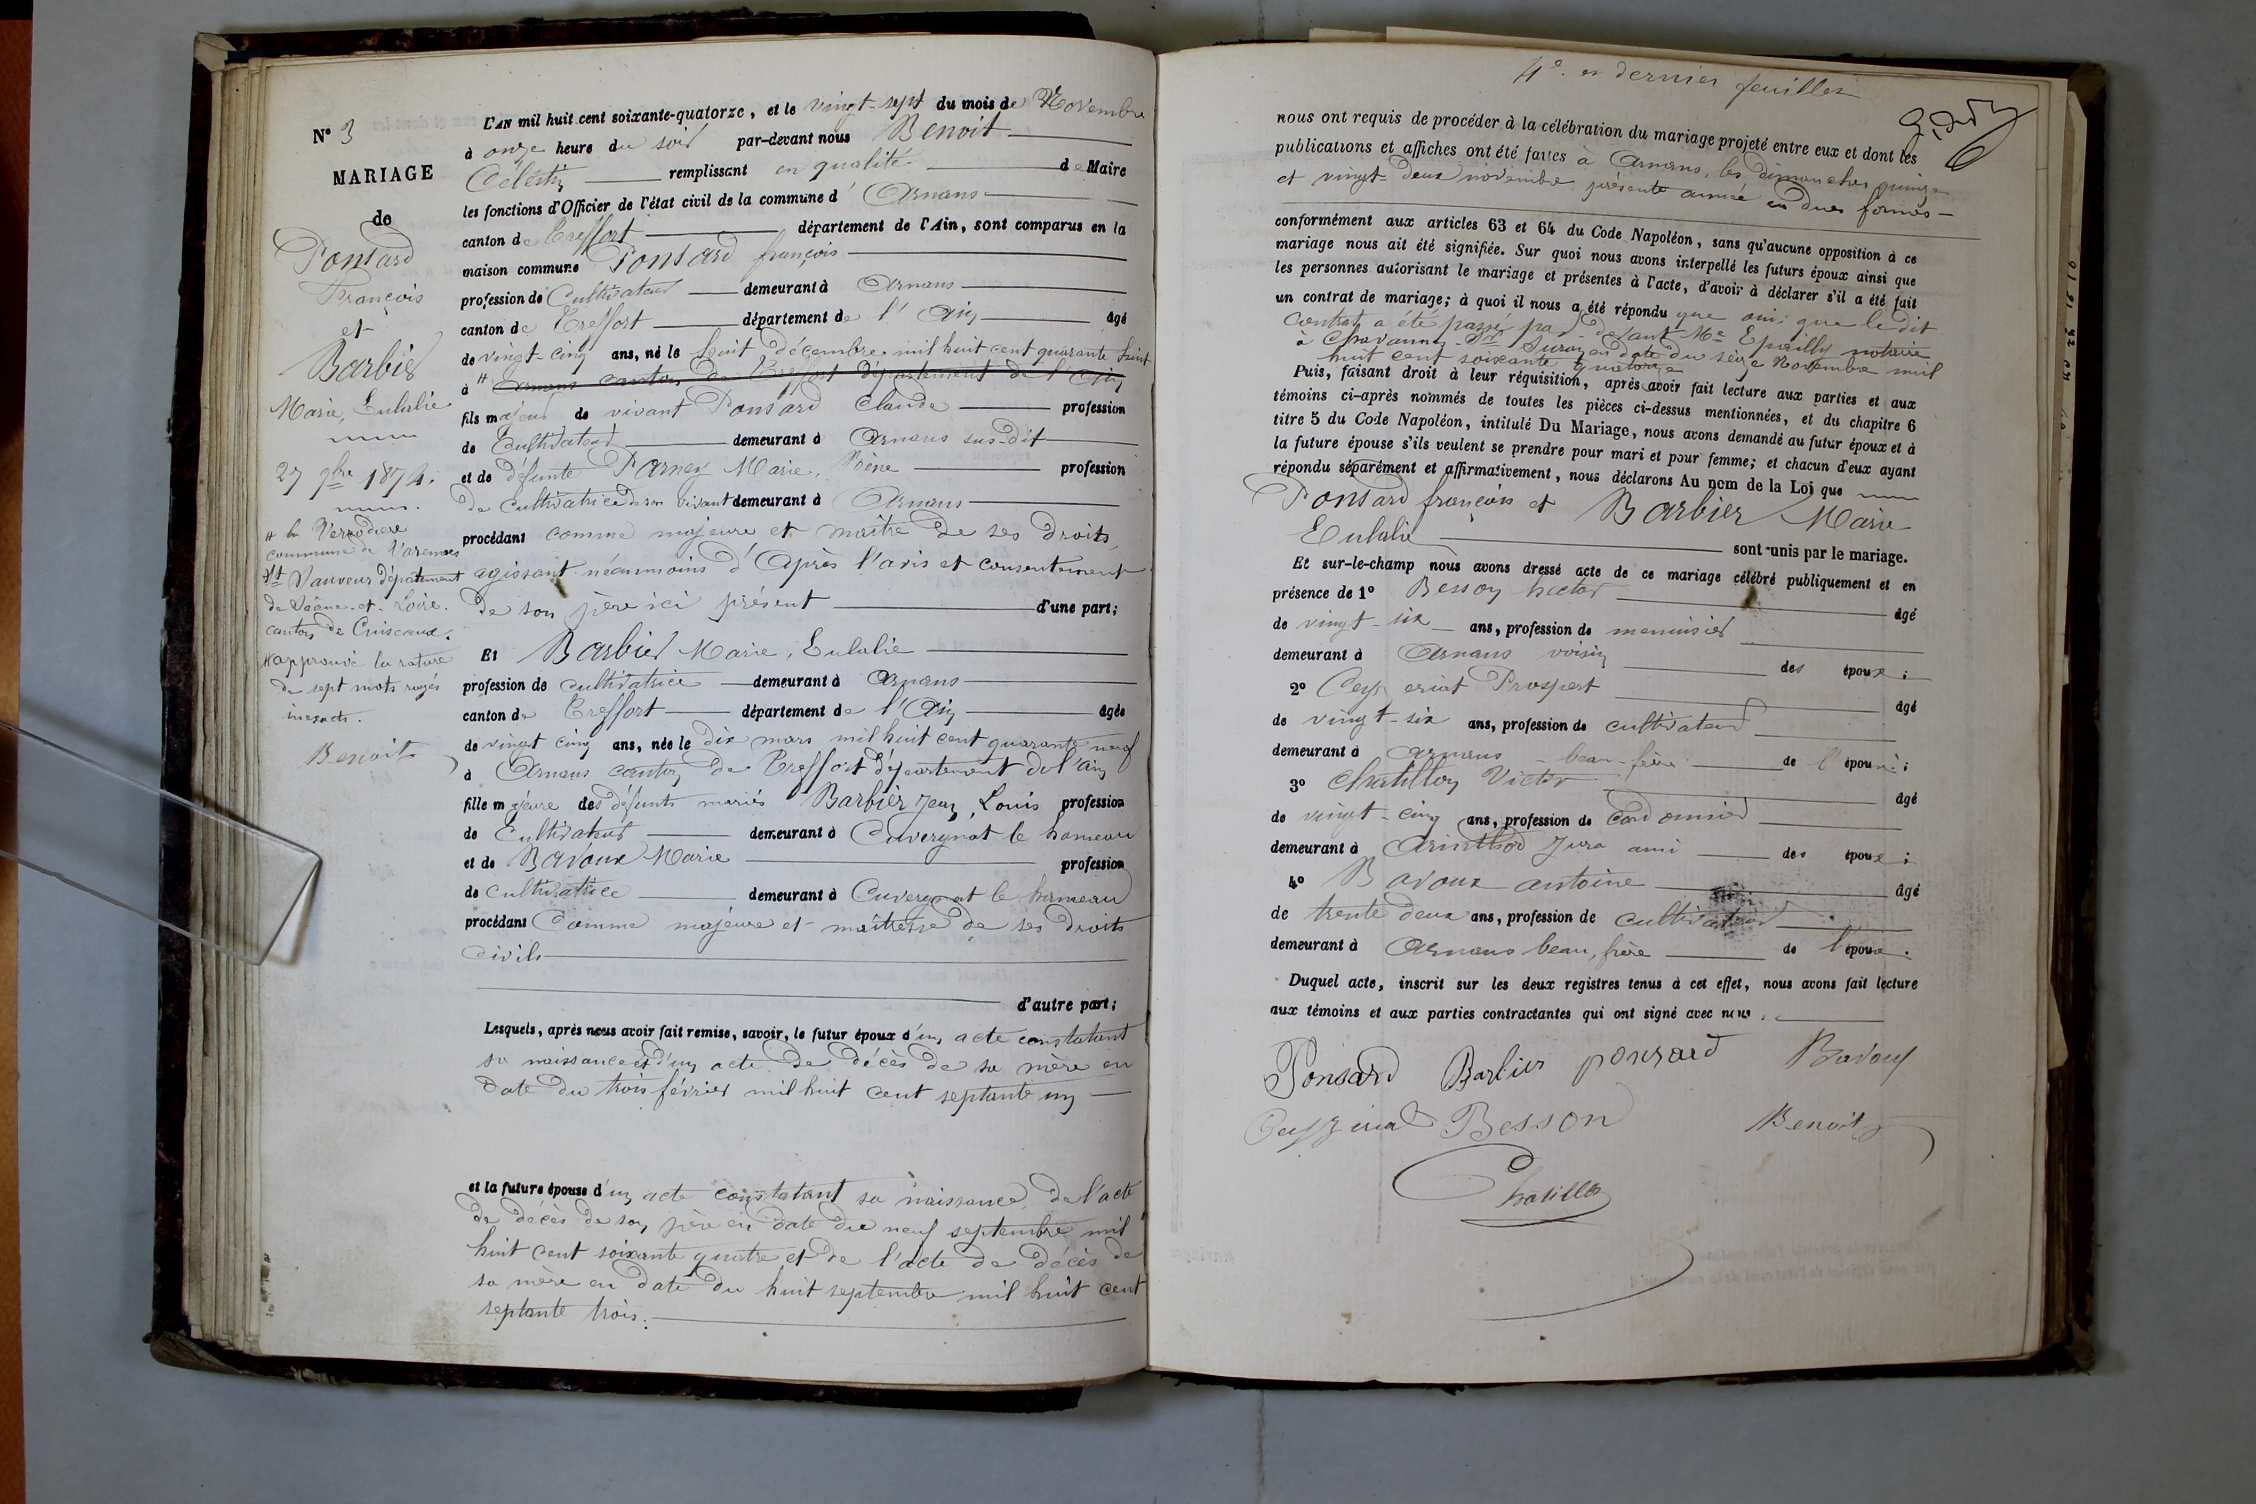 N° 3
MARIAGE
de
Ponsard
François
et
Barbier
Marie, Eulalie
27 9bre 1874.
# la Verodière
commune de Varennes
St Sauveur département
de Saône-et-Loire.
canton de Cuiseaux.
# approuvé la rature
de sept mots rayés
inexacts.
Benoit
L'AN mil huit cent soixante-quatorze, et le vingt-sept du mois de Novembre
à onze heure du soir par-devant nous Benoit
Célestin remplissant en qualité de Maire
les fonctions d'Officier de l'état civil de la commune d' Arnans
canton de Treffort département de l'Ain, sont comparus en la
maison commune Ponsard françois
profession de Cultivateur demeurant à Arnans
canton de Treffort département de l' Ain âgé
de vingt-cinq ans, né le huit décembre mil huit cent quarante huit
à # Arnans canton de Treffort département de l'Ain
fils majeur de vivant Ponsard Claude profession
de Cultivateur demeurant à Arnans sus-dit
et de défunte Marie, profession
de cultivatrice de son vivant demeurant à Arnans
procédant comme majeure et maître de ses droits,
agissant néanmoins d'Après l'avis et consentement
de son père ici présent d'une part;
Et Barbier Marie, Eulalie
profession de cultivatrice demeurant à Arnans
canton de Treffort département de l'Ain âgée
de vingt cinq ans, née le dix mars mil huit cent quarante neuf
à Arnans canton de Treffort département de l'ain
fille majeure des défunts mariés Barbier Jean, Louis profession
de Cultivateur demeurant à Cuvergnat le hameau
et de Bavoux Marie profession
de cultivatrice demeurant à Cuvergnat le hameau
procédant Comme majeure et maîtresse de ses droits
civils
d'autre part;
Lesquels, après nous avoir fait remise, savoir, le futur époux d'un acte constatant
sa naissance et d'un acte de décès de sa mère en
date du trois février mil huit cent septante un
et la future épouse d'un acte constatant sa naissance, de l'acte
de décès de son père en date du neuf septembre mil
huit cent soixante quatre et de l'acte de décès de
sa mère en date du huit septembre mil huit cent
septante trois.
4e et dernier feuillet
nous ont requis de procéder à la célébration du mariage projeté entre eux et dont les
publications et affiches ont été faites à Arnans, les dimanches quinze
et vingt-deux novembre présente année en dues formes
conformément aux articles 63 et 64 du Code Napoléon, sans qu'aucune opposition à ce
mariage nous ait été signifiée. Sur quoi nous avons interpellé les futurs époux ainsi que
les personnes autorisant le mariage et présentes à l'acte, d'avoir à déclarer s'il a été fait
un contrat de mariage; à quoi il nous a été répondu que oui que le dit
Contrat a été passé par devant Me Epailly notaire
à Chavannes-Sr Suran en date du seize Novembre mil
huit cent soixante quatorze
Puis, faisant droit à leur réquisition, après avoir fait lecture aux parties et aux
témoins ci-après nommés de toutes les pièces ci-dessus mentionnées, et du chapitre 6
titre 5 du Code Napoléon, intitulé Du Mariage, nous avons demandé au futur époux et à
la future épouse s'ils veulent se prendre pour mari et pour femme; et chacun d'eux ayant
répondu séparément et affirmativement, nous déclarons Au nom de la Loi que
Ponsard françois et Barbier Marie
Eulalie sont unis par le mariage.
Et sur-le-champ nous avons dressé acte de ce mariage célébré publiquement et en
présence de 1° Besson hector âgé
de vingt-six ans, profession de menuisier
demeurant à Arnans voisin des époux;
2° Ceyzeriat Prospert âgé
de vingt-six ans, profession de cultivateur
demeurant à Arnans beau-frère de l'épouse;
3° Chatillon Victor âgé
de vingt-cinq ans, profession de Cordonnier
demeurant à Arinthod Jura ami des époux;
4° Bavoux antoine âgé
de trente deux ans, profession de cultivateur
demeurant à Arnans beau, frère de l'épouse.
Duquel acte, inscrit sur les deux registres tenus à cet effet, nous avons fait lecture
aux témoins et aux parties contractantes qui ont signé avec nous.
Ponsard Barbier ponsard Bavoux
Ceyzeriat Besson Benoit
Chatillon